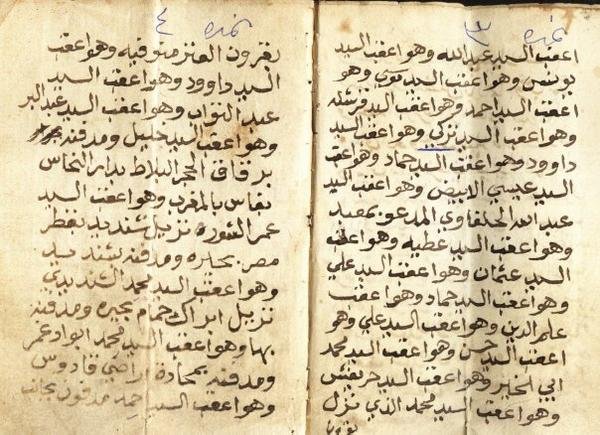 نمره ٣
اعقب السيد عبد الله وهو اعقب السيد
يونس وهو اعقب السيد وهو
اعقب السيد احمد وهو اعقب السيد قرشله
وهو اعقب السيد تركي وهو اعقب السيد
داوود وهو اعقب السيد حماد وهو اعقب
السيد عيسي الابيض وهو اعقب السيد
عبد الله الحلفاوي المدعو بمعبد
وهو اعقب السيد عطيه وهو اعقب
السيد عثمان وهو اعقب السيد علي
وهو اعقب السيد حماد وهو اعقب
علم الدين وهو اعقب السيد علي وهو
اعقب السيد حسن وهو اعقب السيد محمد
ابي الخير وهو اعقب السيد
وهو اعقب السيد محمد الذي نزل
نمره ٤
بقرون العنز متوفيه وهو اعقب
السيد داوود وهو اعقب السيد
عبد التواب وهو اعقب السيد عبد البر
وهو اعقب السيد خليل ومدفنه
بزقاق الحجر البلاط بدار النحاس
بفاس بالمغرب وهو اعقب السيد
عمر الشهره نزيل شنديد بقطر
مصر بحيره ومدفنه بشنديد
وهو اعقب السيد محمد الشنديدي
نزيل ابراك حمام بحيره ومدفنه
بها وهو اعقب السيد محمد ابو ادغمر
ومدفنه بمحاذة اراضي قادوس
وهو اعقب السيد حمد مدفون بجانب